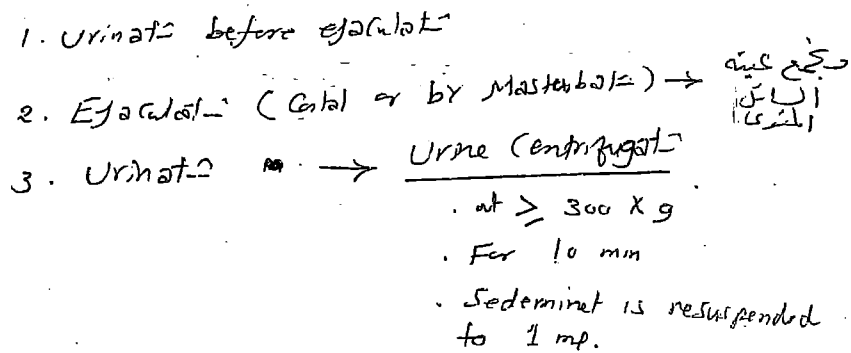 1. Urination before ejaculation
2. Ejaculation (Coital or by Masterbation) → ونجمع عينه
السائل
المنوى
3. Urination → Urine Centrifugation
. at ≥ 300 X g
. For 10 min
. Sedeminet is resuspended
to 1 ml.